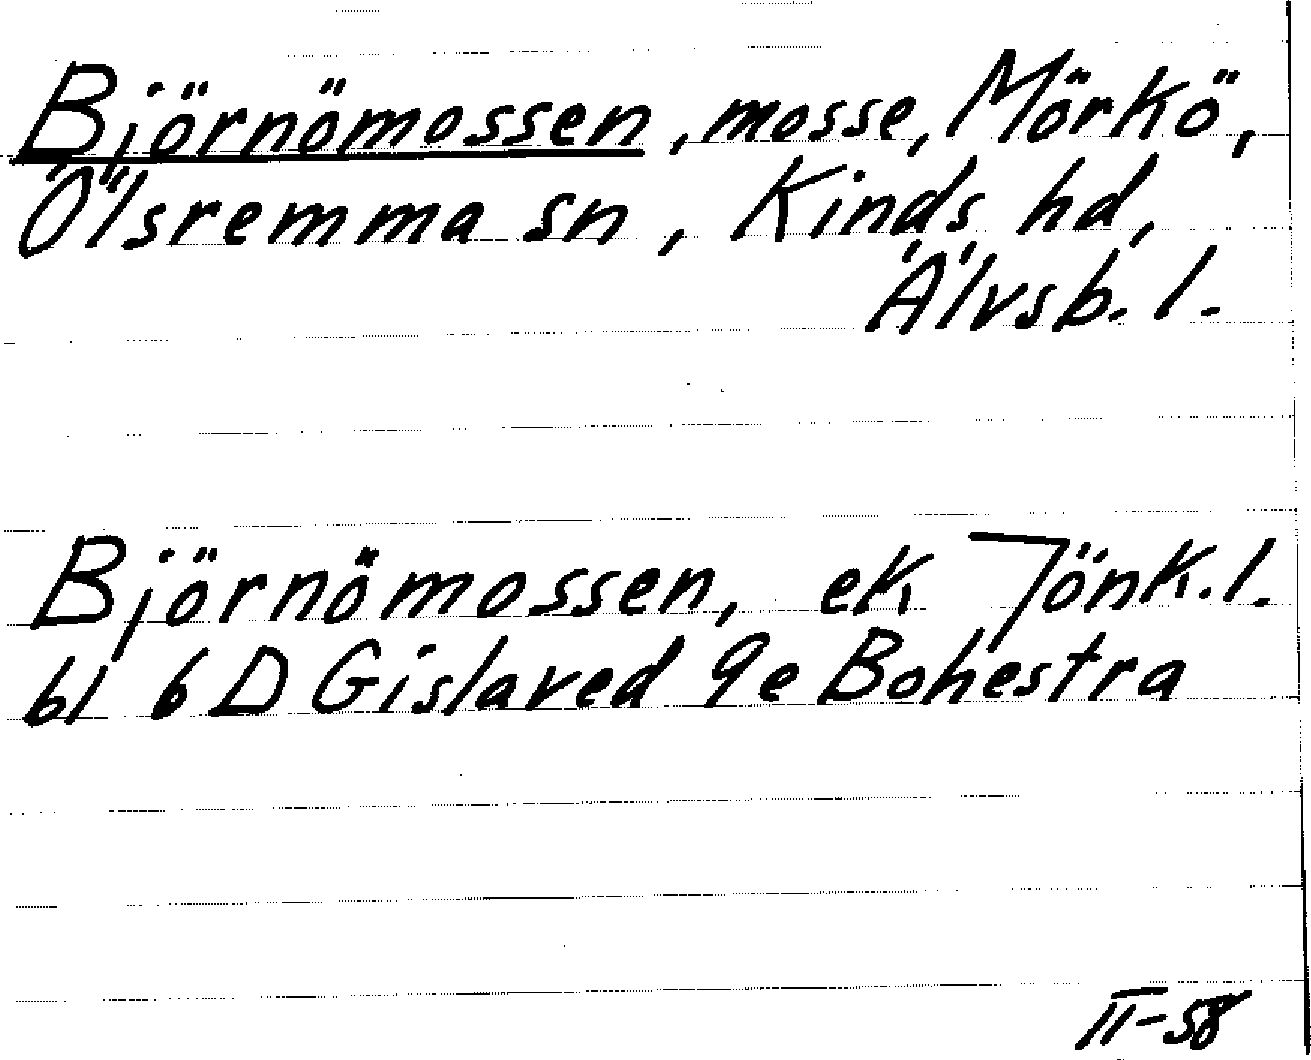 Björnömossen, mosse, Mörkö,
Ölsremma sn, Kinds hd,
Älvsb. l.
Björnömossen, ek Jönk. l.
bl 6 D Gislaved 9e Bohestra
II-58